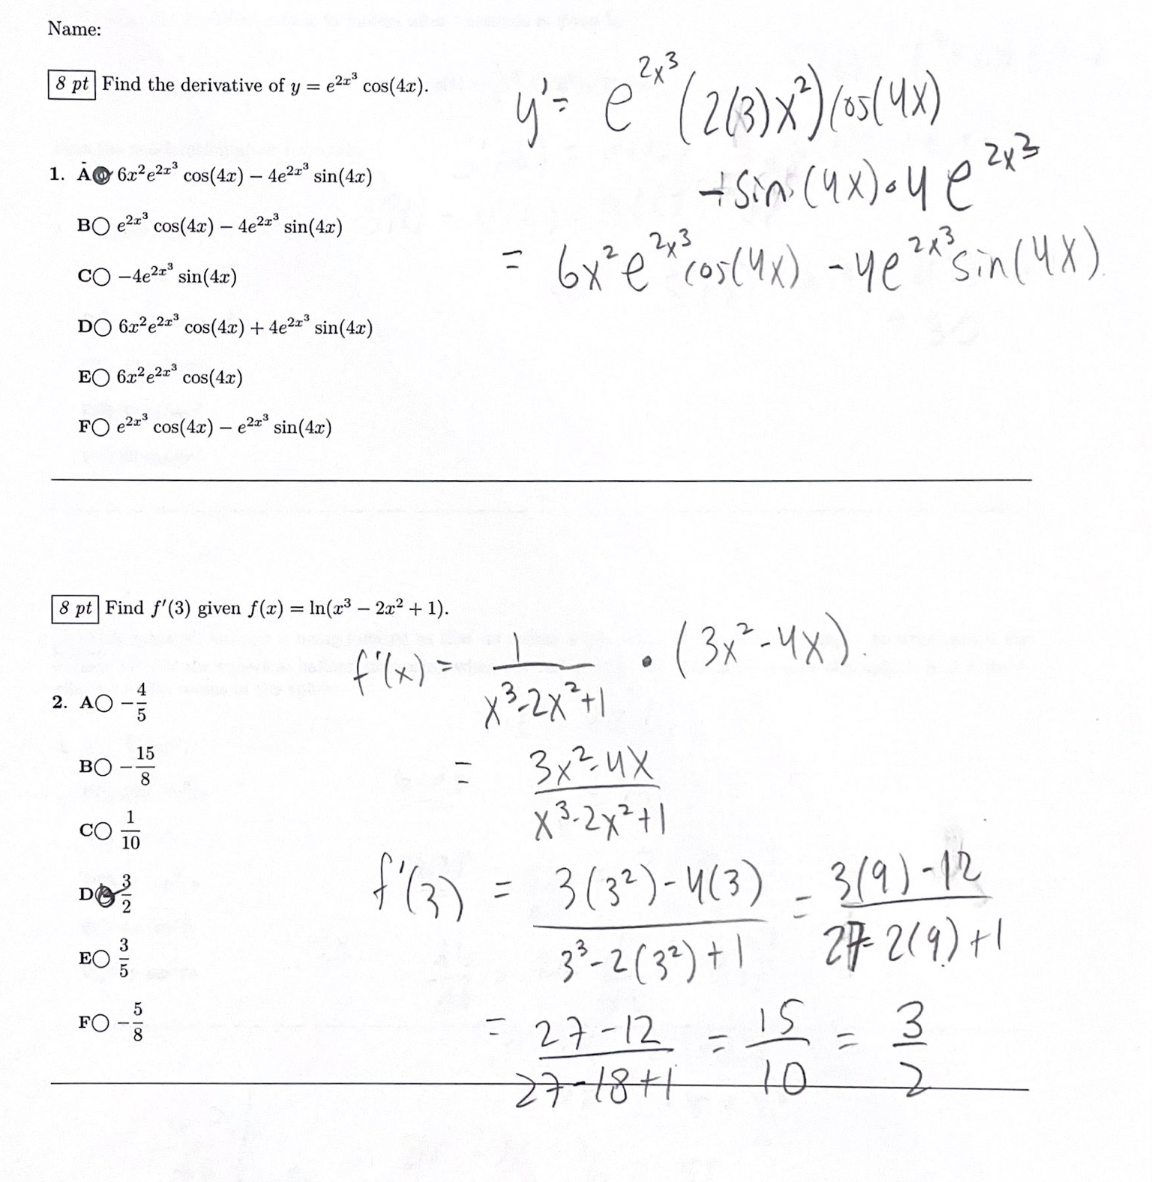 Name:
8 pt Find the derivative of y = e^{2x^3} cos(4x).
y' = e^{2x^3} (2(3)x^2) cos(4x)
+ -sin(4x)•4 e^{2x^3}
= 6x^2 e^{2x^3} cos(4x) - 4e^{2x^3} sin(4x).
1. A 6x^2e^{2x^3} cos(4x) − 4e^{2x^3} sin(4x)
B○ e^{2x^3} cos(4x) − 4e^{2x^3} sin(4x)
C○ −4e^{2x^3} sin(4x)
D○ 6x^2e^{2x^3} cos(4x) + 4e^{2x^3} sin(4x)
E○ 6x^2e^{2x^3} cos(4x)
F○ e^{2x^3} cos(4x) − e^{2x^3} sin(4x)
8 pt Find f'(3) given f(x) = ln(x^3 − 2x^2 + 1).
f'(x) = 1/(x^3-2x^2+1) • (3x^2-4x).
= (3x^2-4x)/(x^3-2x^2+1)
f'(3) = (3(3^2)-4(3))/(3^3-2(3^2)+1) = (3(9)-12)/(27-2(9)+1)
= (27-12)/(27-18+1) = 15/10 = 3/2
2. A○ −4/5
B○ −15/8
C○ 1/10
D 3/2
E○ 3/5
F○ −5/8